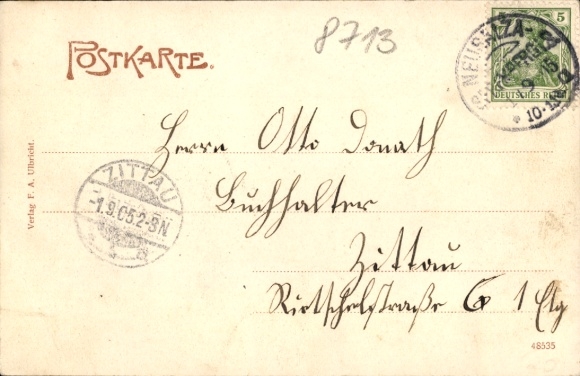 8713
POSTKARTE.
5 5
DEUTSCHES REICH
NEUSALZA-
10-
Herrn Otto Donath
Buchhalter
Zittau
Rietschelstraße 6 1 Etg
ZITTAU
-1.9.05.2-3N
Verlag F. A. Ulbricht.
48535